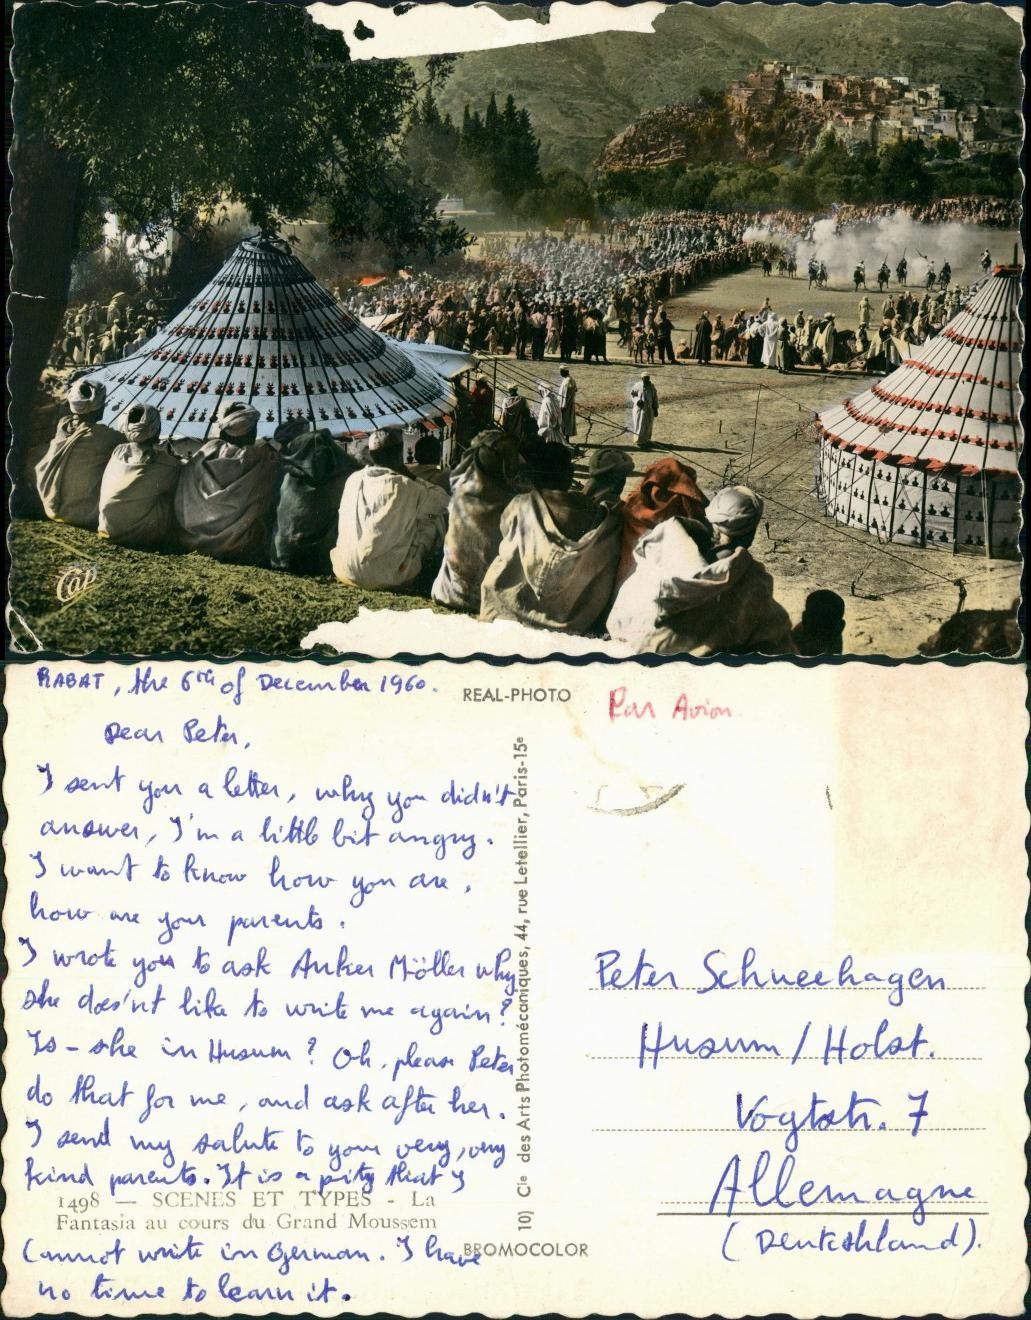 Cap
RABAT, the 6th of December 1960.
Dear Peter,
I sent you a letter, why you didn't
answer, I'm a little bit angry.
I want to know how you are,
how are your parents.
I wrote you to ask Anker Möller why
she does'nt like to write me again?
Is-she in Husum? Oh, please Peter
do that for me, and ask after her.
I send my salute to your very, very
kind parents. It is a pity that I
1498 — SCENES ET TYPES - La
Fantasia au cours du Grand Moussem
cannot write in German. I have
no time to learn it.
REAL-PHOTO
10) Cie des Arts Photomécaniques, 44, rue Letellier, Paris-15e
BROMOCOLOR
Par Avion
Peter Schneehagen
Husum / Holst.
Vogtstr. 7
Allemagne
(Deutschland).